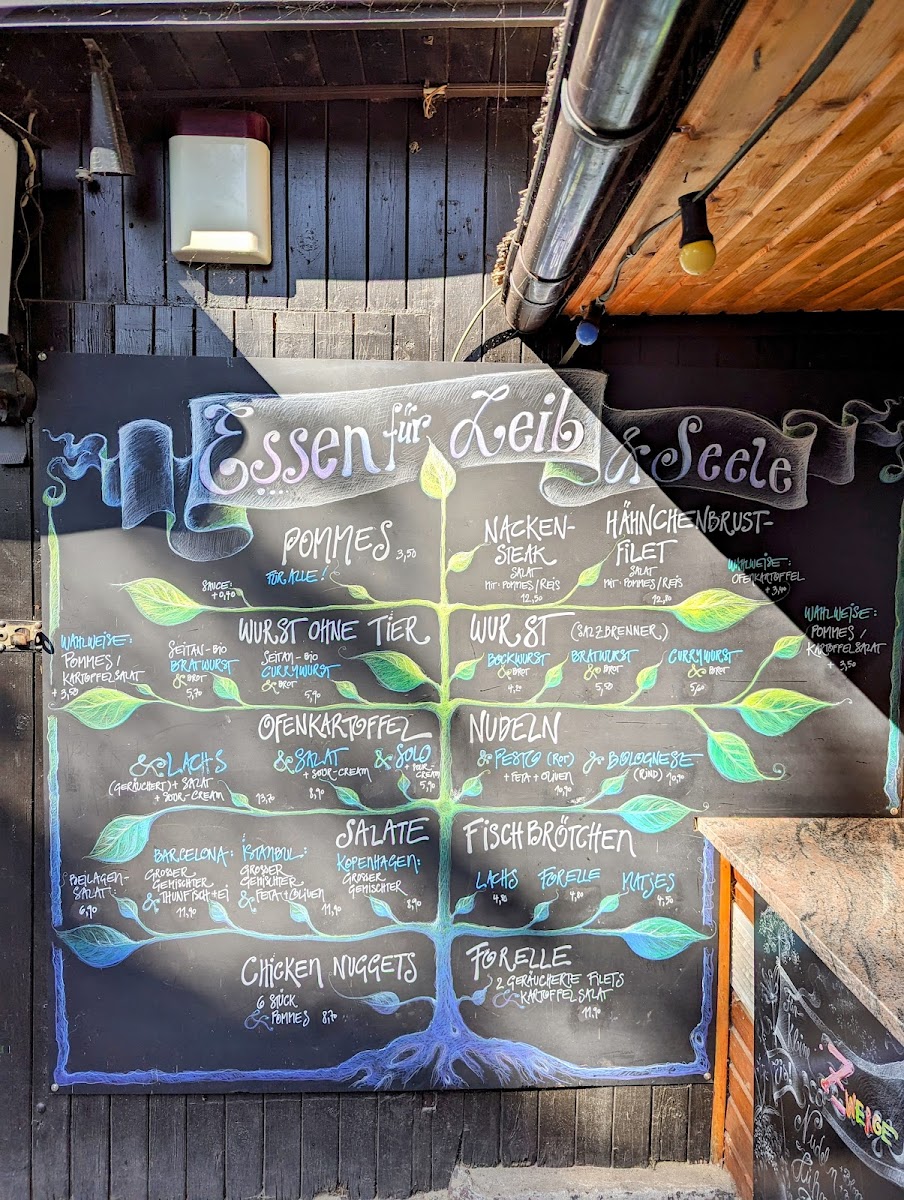 Essen für Leib & Seele
POMMES 3,50
FÜR ALLE!
SAUCE:
+0,40
NACKEN-
STEAK
SALAT
MIT POMMES/REIS
12,50
HÄHNCHENBRUST-
FILET
SALAT
MIT POMMES/REIS
12,80
WAHLWEISE:
OFENKARTOFFEL
WURST OHNE TIER
WAHLWEISE:
POMMES /
KARTOFFELSALAT
+ 3,50
SEITAN-BIO
BRATWURST
& BROT
5,70
SEITAN-BIO
CURRYWURST
& BROT
5,90
WURST (SALZBRENNER)
BOCKWURST
& BROT
4,20
BRATWURST
& BROT
5,50
CURRYWURST
& BROT
5,60
WAHLWEISE:
POMMES /
KARTOFFELSALAT
+ 3,50
OFENKARTOFFEL
& LACHS
(GERÄUCHERT) + SALAT
+ SOUR-CREAM 13,70
& SALAT
+ SOUR-CREAM
8,90
& SOLO
+ SOUR-
CREAM
5,90
NUDELN
& PESTO (ROT)
+ FETA + OLIVEN
10,90
& BOLOGNESE
(RIND) 10,90
SALATE
BEILAGEN-
SALAT:
6,90
BARCELONA:
GROSSER
GEMISCHTER
& THUNFISCH+EI
11,90
ISTANBUL:
GROSSER
GEMISCHTER
& FETA+OLIVEN
11,90
KOPENHAGEN:
GROSSER
GEMISCHTER
8,90
FISCHBRÖTCHEN
LACHS
4,80
FORELLE
4,80
MATJES
4,50
CHICKEN NUGGETS
6 STÜCK
& POMMES 8,70
FORELLE
2 GERÄUCHERTE FILETS
& KARTOFFELSALAT
11,90
ZWERGE